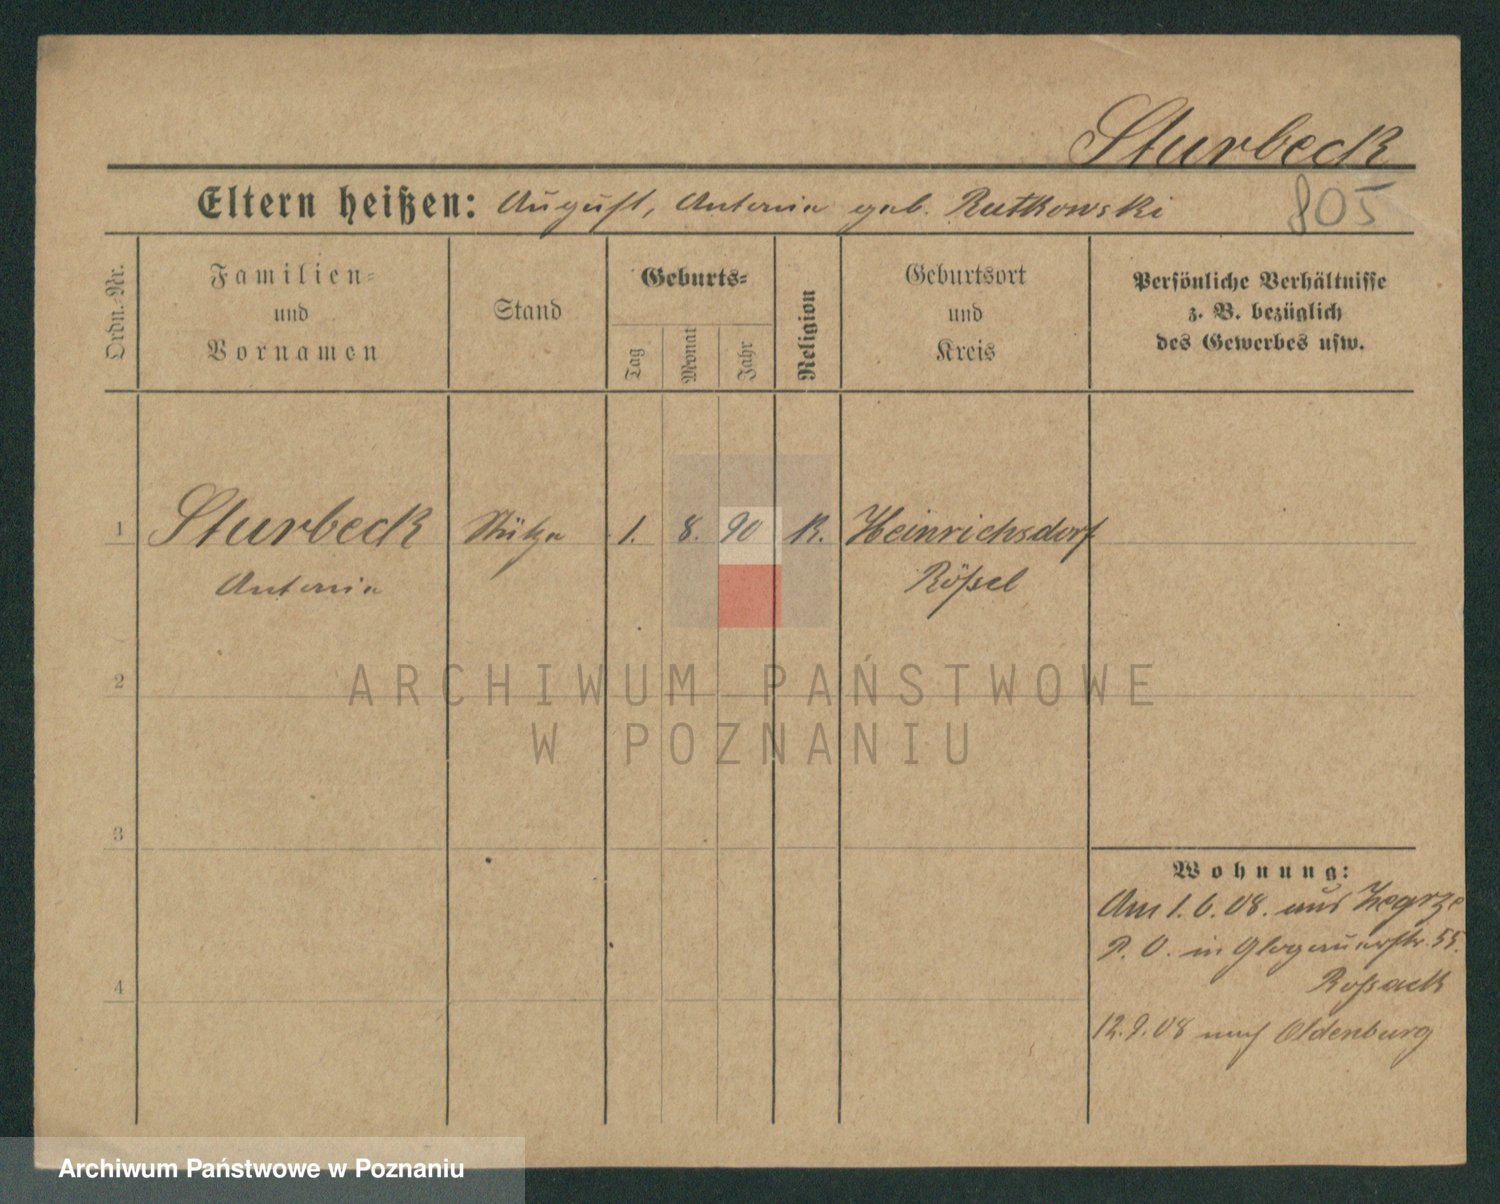 Sturbeck
Eltern heißen: August, Antonie geb. Rutkowski
805
Ordn.-Nr.
Familien-
und
Vornamen
Stand
Geburts-
Tag
Monat
Jahr
Religion
Geburtsort
und
Kreis
Persönliche Verhältnisse
z. B. bezüglich
des Gewerbes usw.
1 Sturbeck Stütze 1. 8. 90 K. Heinrichsdorf
Antonie Rößel
2
3
4
Wohnung:
Am 1.6.08. aus Zegrze
P. O. in Glogauerstr. 55.
Roßack
12.9.08 nach Oldenburg
ARCHIWUM PAŃSTWOWE
W POZNANIU
Archiwum Państwowe w Poznaniu